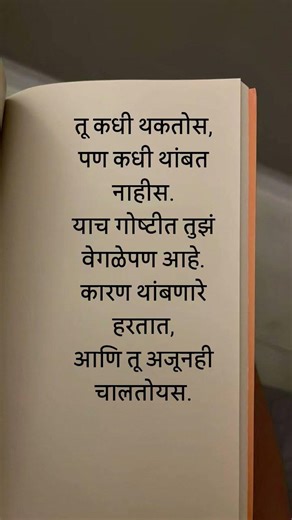 तू कधी थकतोस,
पण कधी थांबत
नाहीस.
याच गोष्टीत तुझं
वेगळेपण आहे.
कारण थांबणारे
हरतात,
आणि तू अजूनही
चालतोयस.